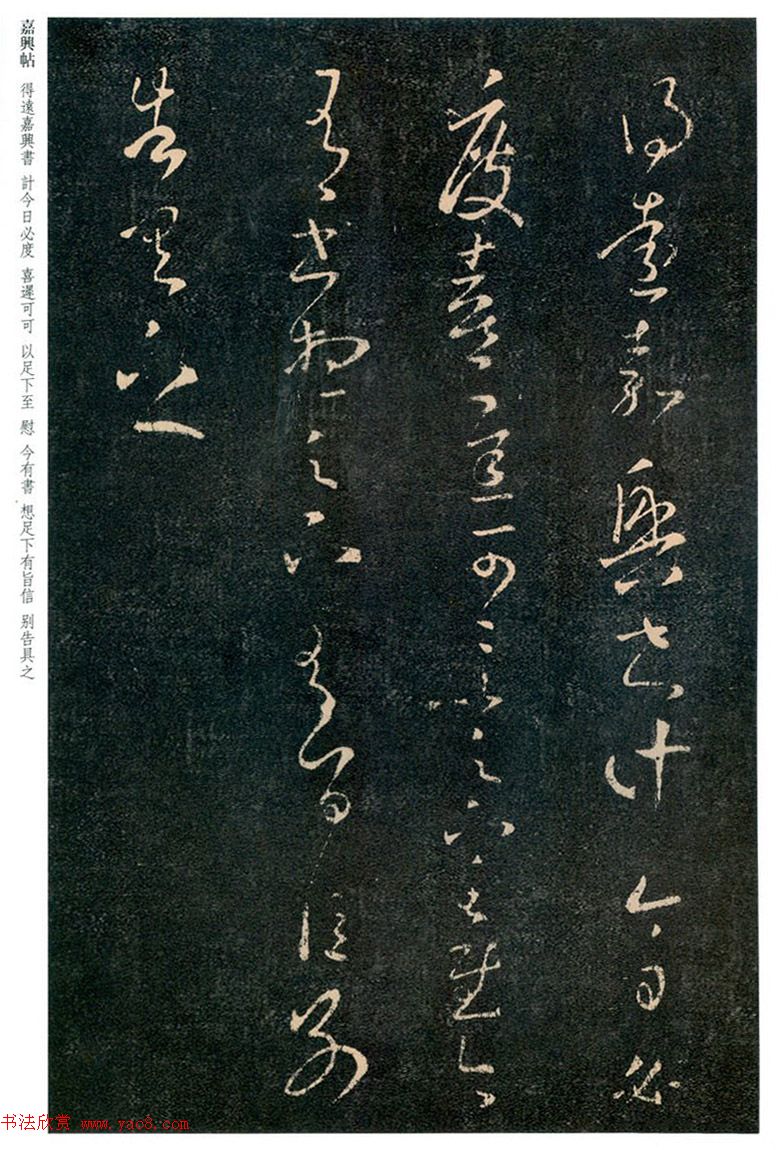 得遠嘉興書計今日必
度喜遲可可以足下至慰今
有書想足下有旨信別
告具之
嘉興帖 得遠嘉興書 計今日必度 喜遲可可 以足下至 慰 今有書 想足下有旨信 別告具之
书法欣赏 www.yac8.com